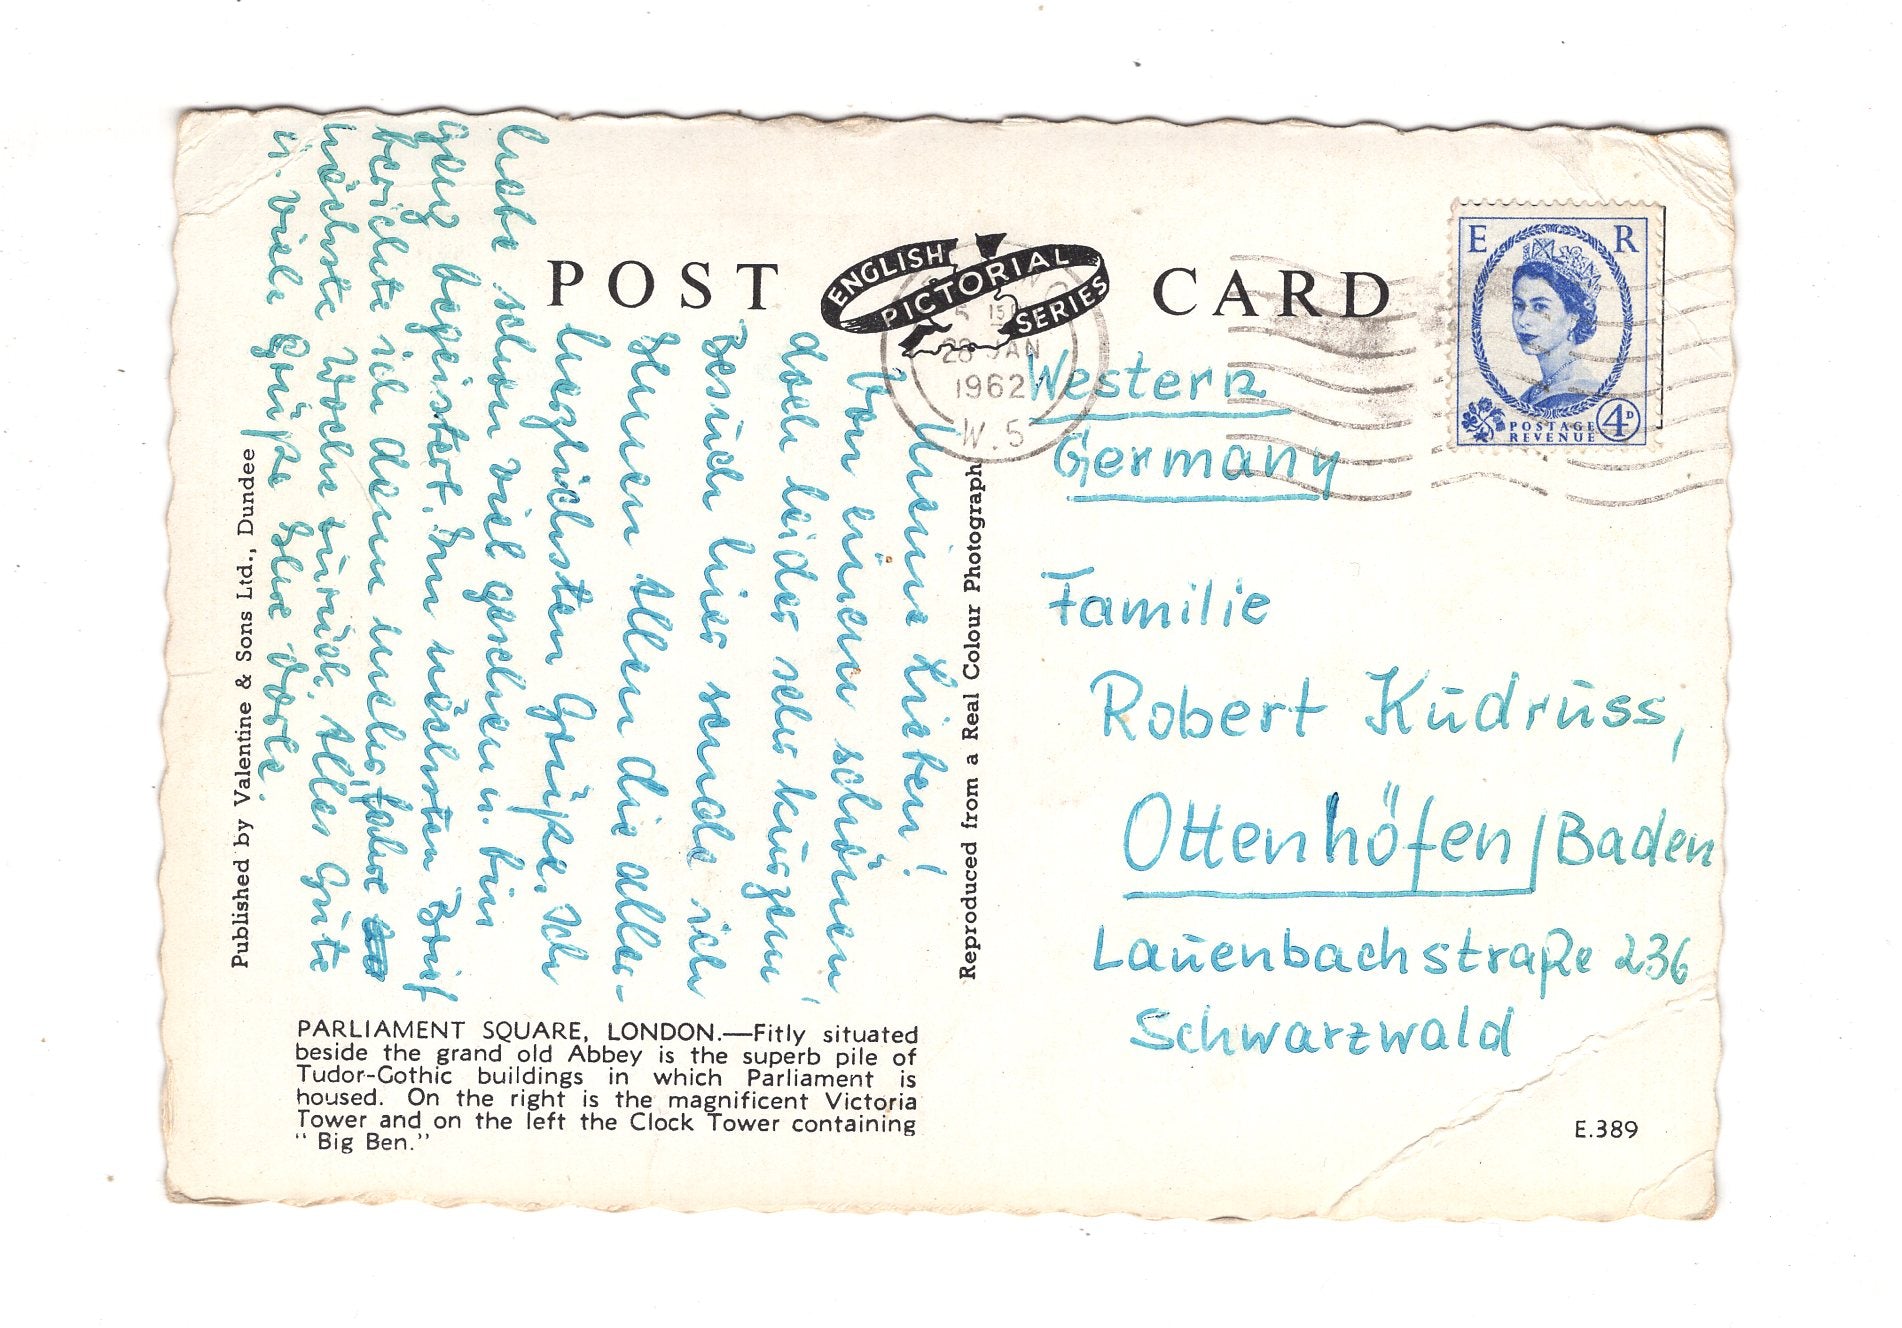 POST CARD
ENGLISH PICTORIAL SERIES
28 JAN
1962
W.5
E R
POSTAGE
REVENUE
4D
Western
Germany
Familie
Robert Kudruss,
Ottenhöfen/Baden
Lauenbachstraße 236
Schwarzwald
Meine Lieben!
Von einem schönen,
doch leider sehr kurzem
Besuch hier sende ich
Ihnen Allen die aller-
herzlichsten Grüße. Ich
habe schon viel gesehen u. bin
ganz begeistert. Im nächsten Brief
berichte ich dann mehr, fahre
nächste Woche zurück. Alles Gute
u. viele Grüße Ihre
Published by Valentine & Sons Ltd., Dundee
Reproduced from a Real Colour Photograph
PARLIAMENT SQUARE, LONDON.—Fitly situated
beside the grand old Abbey is the superb pile of
Tudor-Gothic buildings in which Parliament is
housed. On the right is the magnificent Victoria
Tower and on the left the Clock Tower containing
“ Big Ben.”
E.389